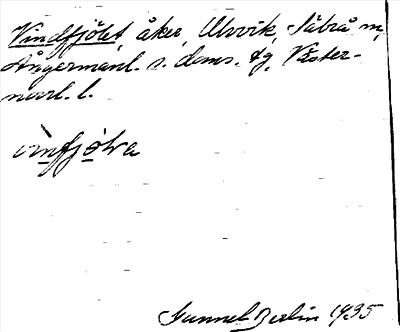 Vindfjölet, åker, Utvik, Säbrå sn,
Ångermanl. s. doms. tg, Väster-
norrl. l.
vìnfjǫlva
Gunnel Berlin 1935